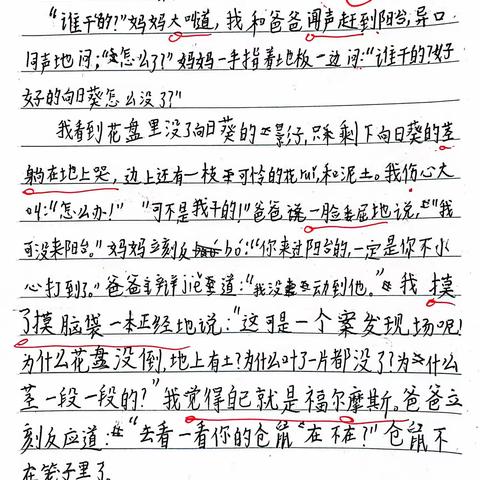 “谁干的?”妈妈大叫道，我和爸爸闻声赶到阳台，异口
同声地问；“怎么了?”妈妈一手指着地板一边问：“谁干的?好
好的向日葵怎么没了?”
我看到花盘里没了向日葵的影行，只剩下向日葵的茎
躺在地上哭，边上还有一枝可怜的花ruǐ，和泥土。我伤心大
叫：“怎么办！” “可不是我干的！”爸爸说一脸委屈地说，“我
可没来阳台。”妈妈立刻反bó：“你来过阳台的，一定是你不小
心打到了。”爸爸辩jiě道：“我没动到他。”我摸
了摸脑袋一本正经地说：“这可是一个案发现场呢！
为什么花盘没倒，地上有土?为什么叶了一片都没了?为什么
茎一段一段的？”我觉得自己就是福尔摩斯。爸爸立
刻反应道：“去看一看你的仓鼠“在不在?”仓鼠不
在笼子里了。